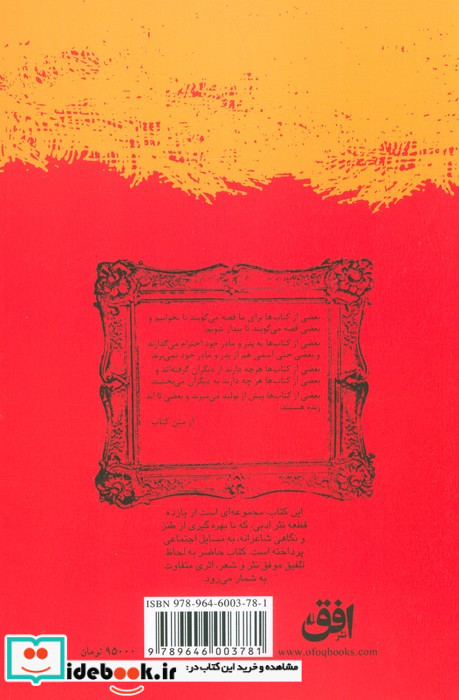 بعضی از کتاب‌ها برای ما قصه می‌گویند تا بخوابیم و
بعضی قصه می‌گویند تا بیدار شویم.
بعضی از کتاب‌ها به پدر و مادر خود احترام می‌گذارند
و بعضی حتی اسمی هم از پدر و مادر خود نمی‌برند
بعضی از کتاب‌ها هرچه دارند از دیگران گرفته‌اند و
بعضی از کتاب‌ها هر چه دارند به دیگران می‌بخشند.
بعضی از کتاب‌ها پیش از تولید می‌میرند و بعضی تا ابد
زنده هستند.
از متن کتاب
این کتاب، مجموعه‌ای است از یازده
قطعه نثر ادبی، که با بهره گیری از طنز
و نگاهی شاعرانه، به مسایل اجتماعی
پرداخته است. کتاب حاضر به لحاظ
تلفیق موفق نثر و شعر، اثری متفاوت
به شمار می‌رود.
ISBN 978-964-6003-78-1
9 789646 003781
۹۵۰۰۰ تومان
نشر افق
www.ofoqbooks.com
مشاهده و خرید این کتاب در:
idebook.ir